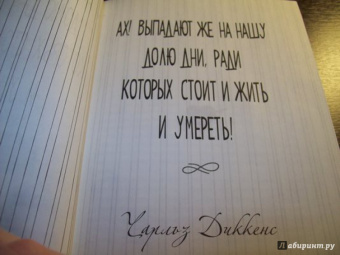 АХ! ВЫПАДАЮТ ЖЕ НА НАШУ
ДОЛЮ ДНИ, РАДИ
КОТОРЫХ СТОИТ И ЖИТЬ
И УМЕРЕТЬ!
Чарльз Диккенс
Лабиринт.ру